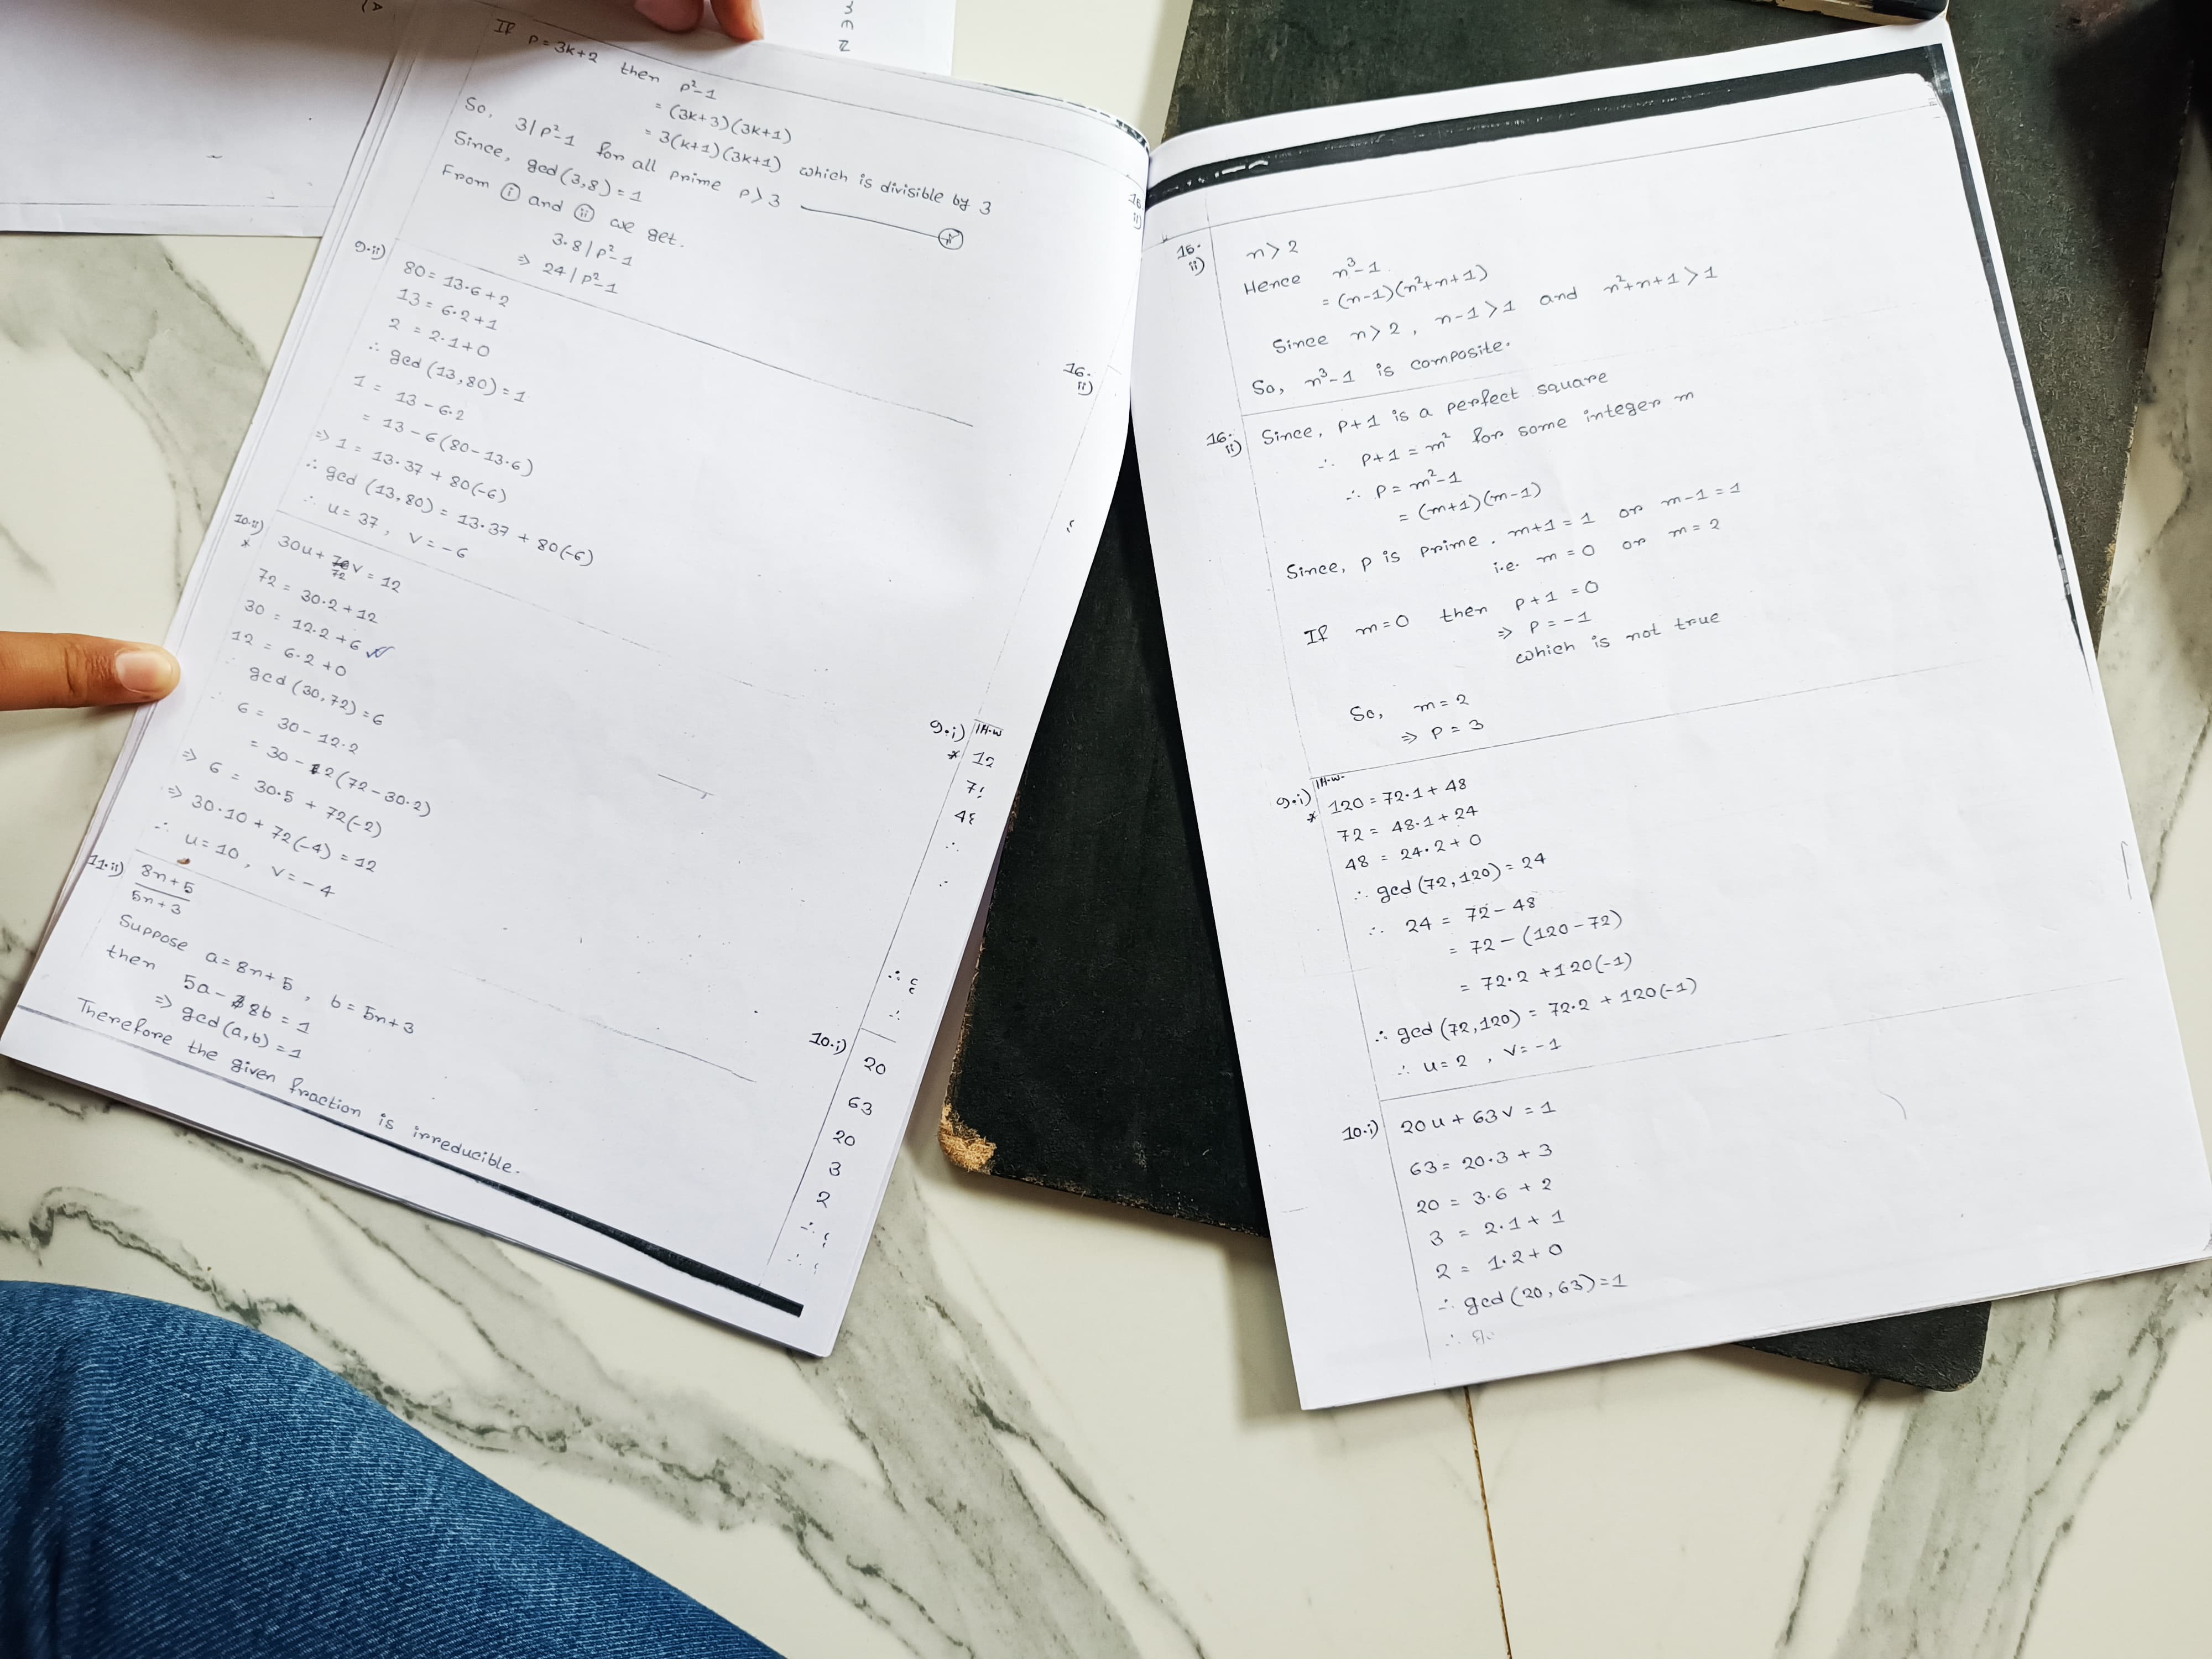 If P = 3k+2 then p²-1
= (3k+3)(3k+1)
= 3(k+1)(3k+1) which is divisible by 3
So, 3/p²-1 for all prime p>3 ii
Since, gcd(3,8)=1
From i and ii we get.
3.8/p²-1
⇒ 24/p²-1
9.ii) 80 = 13·6+2
13 = 6·2+1
2 = 2·1+0
∴ gcd(13,80)=1
1 = 13-6·2
= 13-6(80-13·6)
⇒ 1 = 13·37 + 80(-6)
∴ gcd(13,80) = 13·37 + 80(-6)
∴ u=37, v=-6
10.ii) 30u + 72v = 12
*
72 = 30·2+12
30 = 12·2+6
12 = 6·2+0
∴ gcd(30,72)=6
∴ 6 = 30-12·2
= 30-2(72-30·2)
⇒ 6 = 30·5 + 72(-2)
⇒ 30·10 + 72(-4) = 12
∴ u=10, v=-4
11.ii) 8n+5
5n+3
Suppose a=8n+5, b=5n+3
then 5a-8b=1
⇒ gcd(a,b)=1
Therefore the given fraction is irreducible.
16.
ii)
9.i) H.w
* 12
∴
∴
∴
∴
10.i) 20
63
20
3
2
∴
∴
15.
ii) n>2
Hence n³-1
= (n-1)(n²+n+1)
Since n>2, n-1>1 and n²+n+1>1
So, n³-1 is composite.
16.
ii) Since, p+1 is a perfect square
∴ p+1 = m² for some integer m
∴ P = m²-1
= (m+1)(m-1)
Since, p is prime. m+1=1 or m-1=1
i.e. m=0 or m=2
If m=0 then p+1=0
⇒ p=-1
which is not true
So, m=2
⇒ P=3
H.w.
9.i) 120 = 72·1+48
* 72 = 48·1+24
48 = 24·2+0
∴ gcd(72,120)=24
∴ 24 = 72-48
= 72-(120-72)
= 72·2+120(-1)
∴ gcd(72,120) = 72·2 + 120(-1)
∴ u=2, v=-1
10.i) 20u + 63v = 1
63 = 20·3+3
20 = 3·6+2
3 = 2·1+1
2 = 1·2+0
∴ gcd(20,63)=1
∴